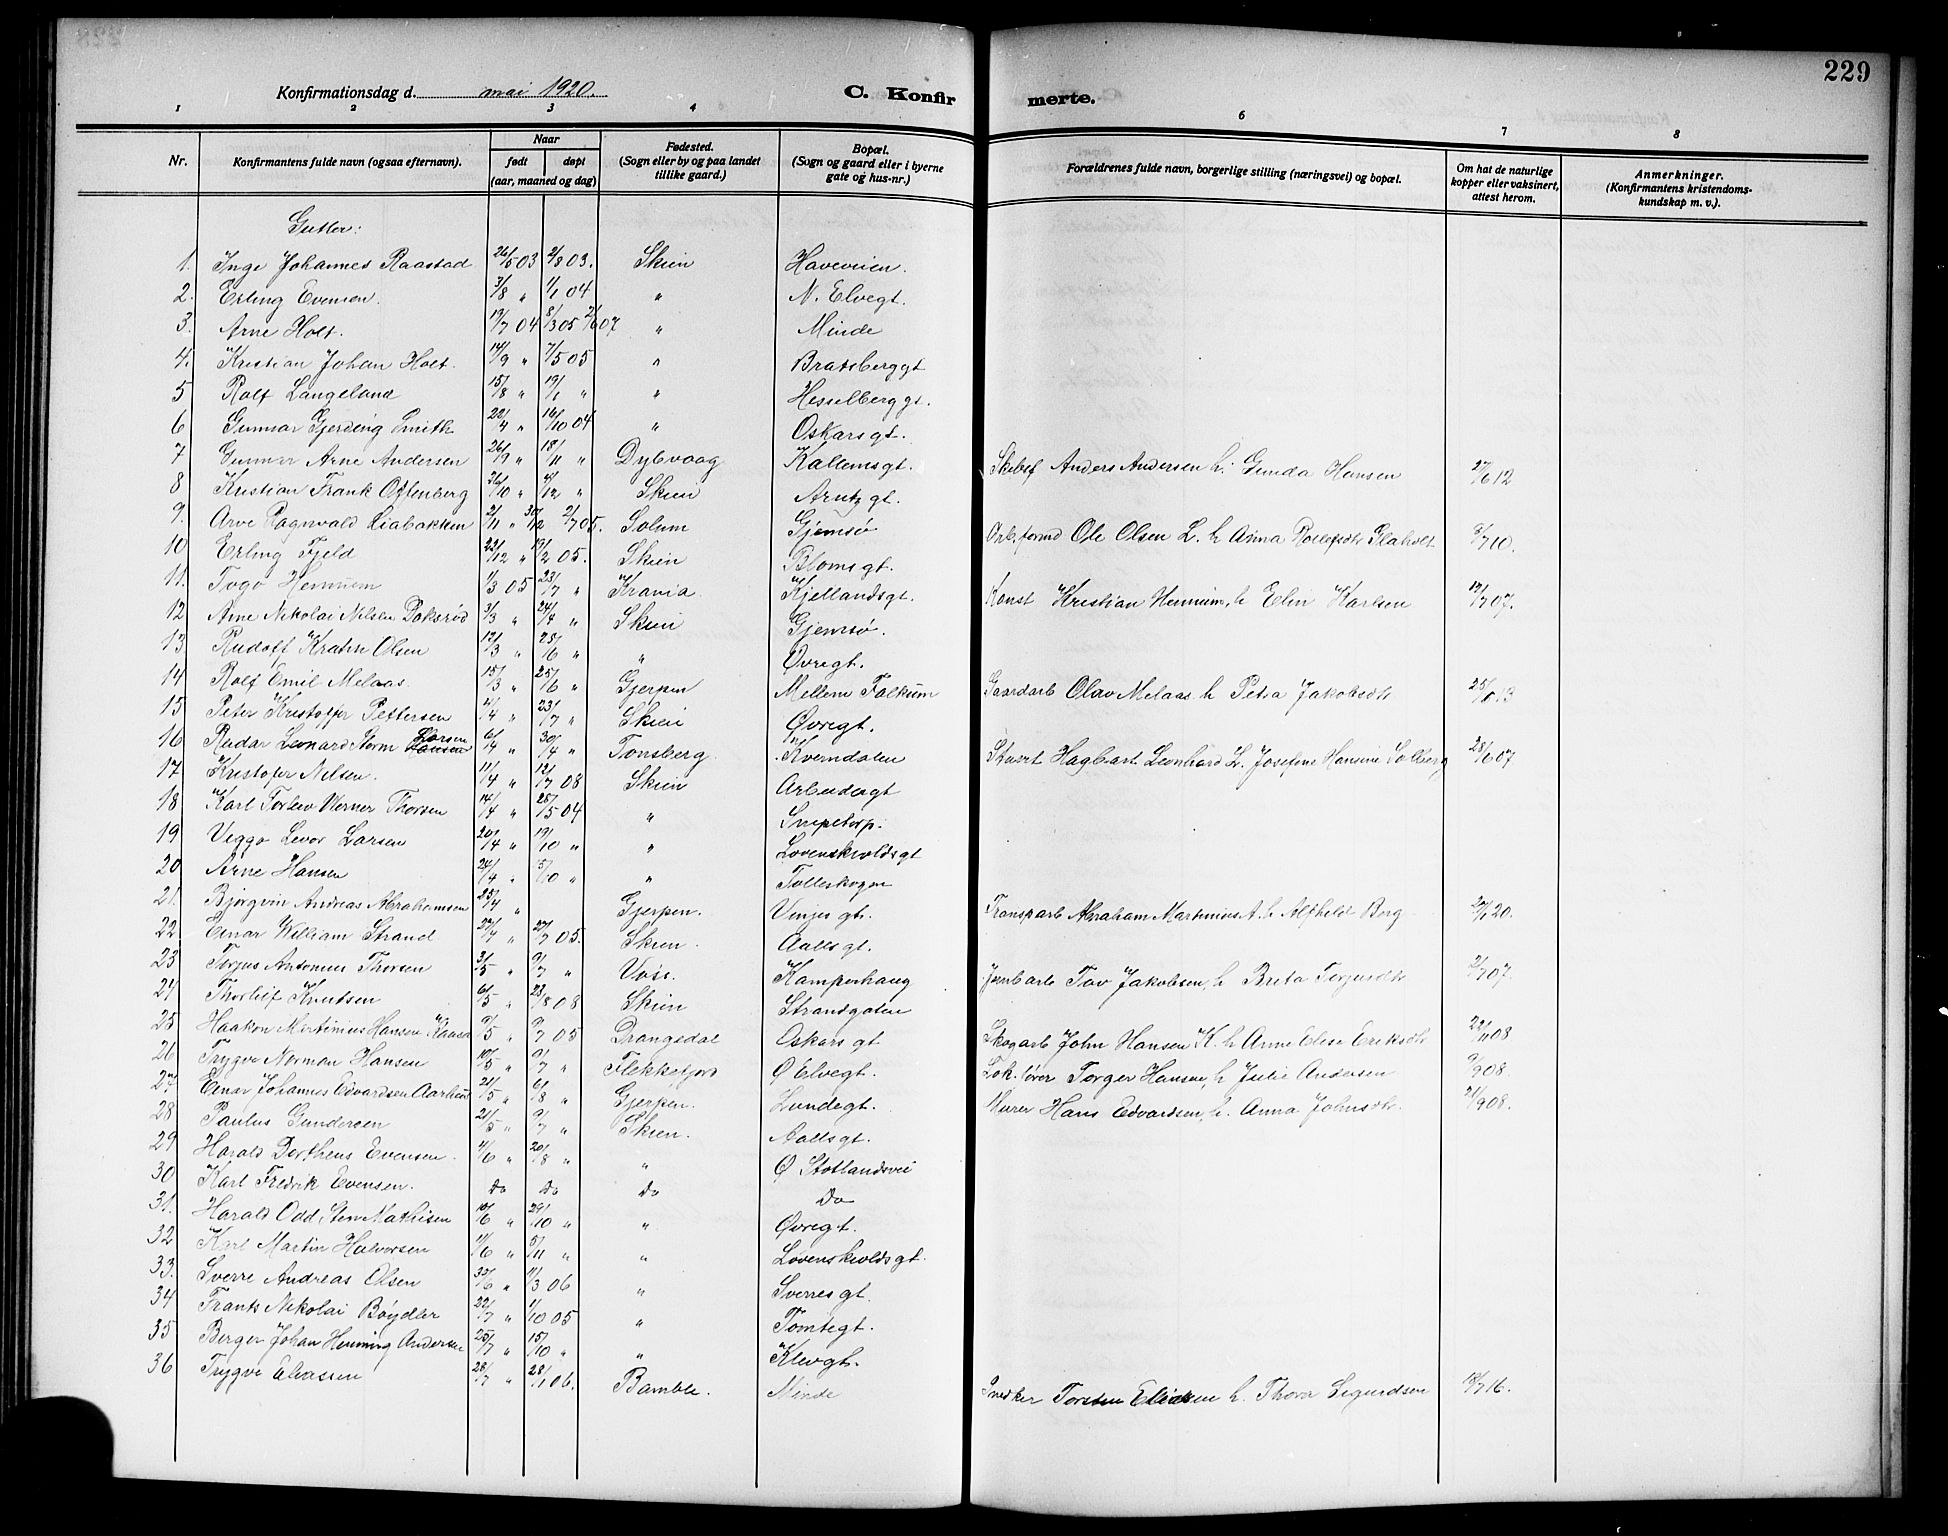 229
Konfirmationsdag d. mai 1920. C. Konfirmerte.
1 2 3 4 5 6 7 8
Nr. Konfirmantens fulde navn (ogsaa efternavn). Naar født døpt (aar, maaned og dag) Fødested. (Sogn eller by og paa landet tillike gaard.) Bopæl. (Sogn og gaard eller i byerne gate og hus-nr.) Forældrenes fulde navn, borgerlige stilling (næringsvei) og bopæl. Om hat de naturlige kopper eller vaksinert, attest herom. Anmerkninger. (Konfirmantens kristendoms-kundskap m. v.).
Gutter:
1. Inge Johannes Raastad 26/5 03 2/8 03. Skien Haveveien.
2. Erling Evensen. 3/8 " 1/1 04 " N. Elvegt.
3. Arne Holt. 19/7 04 8/3 05 2/6 07 " Minde
4. Kristian Johan Holt. 14/9 " 7/5 05 " Bratsberggt
5 Rolf Langeland 15/8 " 19/1 " " Hesselberggt.
6 Gunnar Gjerding Smith 22/4 " 16/10 04 " Oskarsgt.
7 Gunnar Arne Andersen 26/9 " 18/11 " Dybvaag Kallemsgt. Anders Andersen h. Gunda Hansen 27/6 12
8 Kristian Frank Oftenberg 26/10 " 4/12 " Skien Arntzgt.
9. Arve Ragnvald Liabakken 2/11 " 30/12 2/7 05. Solum Gjemsø Arb.formd Ole Olsen L. h Anna 8/7 10.
10 Erling Fjeld 22/12 " 19/2 05. Skien Blomsgt.
11. Togo Hennum 1/3 05 23/7 " Krania. Kjellandsgt. Konst Kristian Hennum, h Elin Karlsen 19/7 07.
12 Arne Nikolai Nilsen Doksrød 3/3 " 24/4 " Skien Gjemsø.
13 Rudolf Krahn Olsen 12/3 " 28/6 " " Øvregt.
14 Rolf Emil Melaas. 15/3 " 25/6 " Gjerpen Mellem Falkum Gaardarb Olav Melaas h Petra Jakobsdtr
15 Peter Kristoffer Pettersen 4/4 " 23/7 " Skien Øvregt.
16 Reidar Leonard Storm Larsen 6/4 " 30/4 " Tønsberg. Kverndalen Stuert Hagbart Leonhard L. Josefine Hansine Solberg 28/6 07
17 Kristofer Nilsen. 11/4 " 12/7 08 Skien Arbeidergt
18 Karl Torlev Werner Thorsen 14/4 " 28/5 04 " Snipetorp.
19 Viggo Levor Larsen 20/4 " 19/10 " " Løvenskioldsgt
20 Arne Hansen 24/4 " 5/10 " " Tolleskogen
21. Bjørgvin Andreas Abrahamsen 25/4 " Gjerpen. Vinjesgt. Transparb Abraham Martinius A. h Alfhild Berg 20.
22 Einar William Strand 27/4 " 27/7 05. Skien. Aallsgt.
23 Torjus Antonius Thorsen 3/5 " 9/7 " Voss. Kamperhaug Jernbarb Tov Jakobsen, h Brita Torjusdtr 2/7 07.
24 Thorleif Knutsen 6/5 " 23/8 08 Skien Strandgaten
25 Haakon Martinius Hansen Kaasa 9/5 " 9/7 05 Drangedal Oskarsgt Skogarb John Hansen K. h Anne Elise Eriksdtr 22/11 08
26 Trygve Norman Hansen 10/5 " 9/7 " Flekkefjord Ø Elvegt. Lok.fører Torger Hansen, h Julie Andersen 9/9 08.
27 Einar Johannes Edvardsen Aarhus 21/5 " 6/8 " Gjerpen. Lundegt. Murer Hans Edvardsen, h. Anna Johnsdtr. 21/9 08.
28 Paulus Gundersen 21/5 " 9/7 " Skien. Aallsgt.
29 Harald Dorthens Evensen. 4/6 " 20/8 " " Ø Stotlandsvei
30 Karl Fredrik Evensen. Do Do Do Do
31. Harald Odd Sten Mathisen 10/6 " 29/10 " " Øvregt.
32 Karl Martin Halvorsen 11/6 " 5/11 " " Løvenskioldsgt.
33. Sverre Andreas Olsen 30/6 " 11/3 06 " Sverresgt.
34 Frants Nikolai Bøydler 22/7 " 1/10 05 " Tomtegt.
35 Berger Johan Henning Andersen 25/7 " 15/10 " " Klevgt.
36 Trygve Eliassen 28/7 " 28/1 06. Bamble. Minde Snedker Torsten Eliassen h. Thora Sigurdsen 18/7 16.